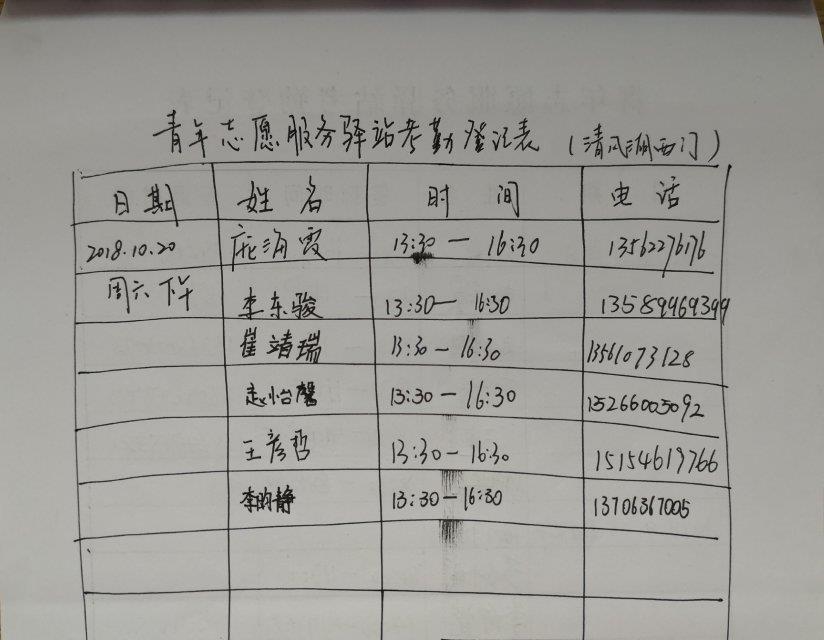 青年志愿服务驿站考勤登记表（清风湖西门）
日期 姓名 时间 电话
2018.10.20 庞海霞 13:30—16:30 13562276176
周六下午 李东骏 13:30—16:30 13589969399
崔靖瑞 13:30—16:30 13561073128
赵怡馨 13:30—16:30 13266005092
王彦哲 13:30—16:30 15154619766
李昀静 13:30—16:30 13706367005